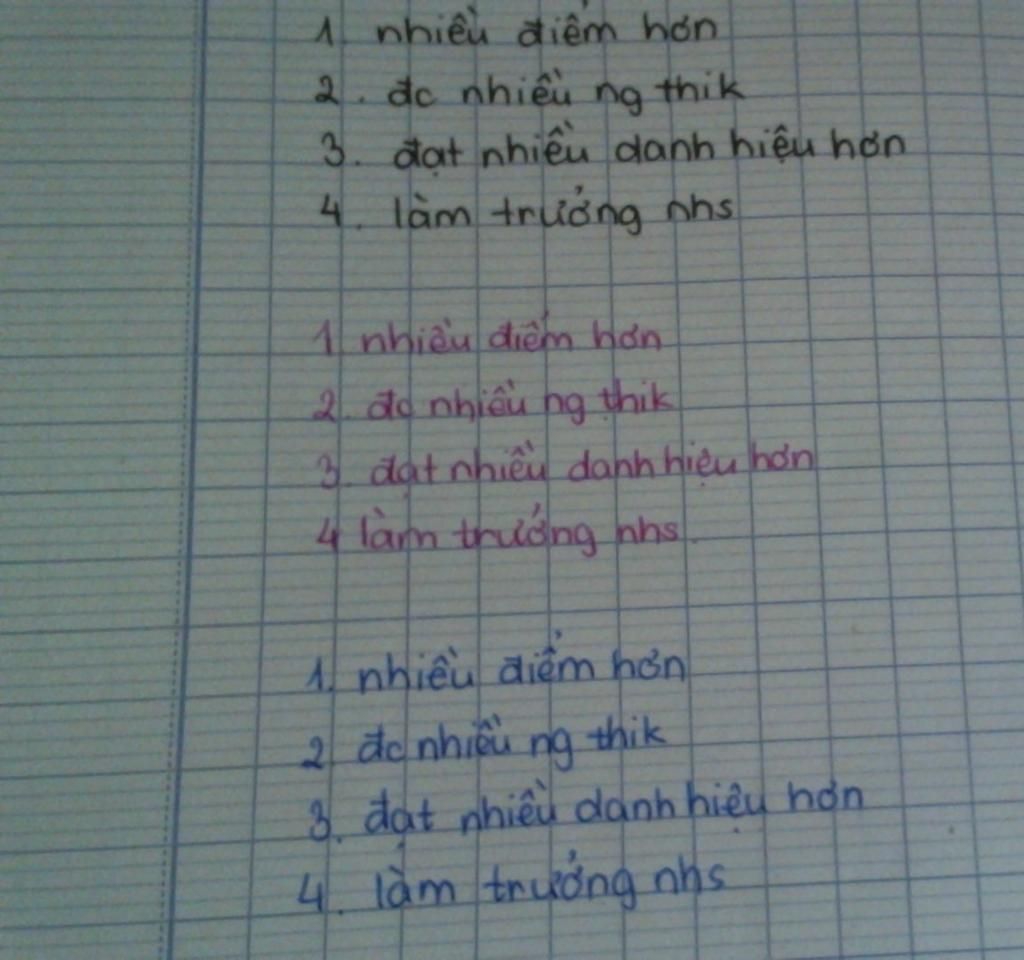 1 nhiều điểm hơn
2. đc nhiều ng thik
3. đạt nhiều danh hiệu hơn
4. làm trưởng nhs
1 nhiều điểm hơn
2. đc nhiều ng thik
3. đạt nhiều danh hiệu hơn
4 làm trưởng nhs.
1. nhiều điểm hơn
2 đc nhiều ng thik
3. đạt nhiều danh hiệu hơn
4. làm trưởng nhs